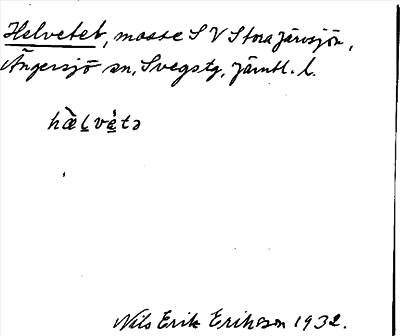 Helvetet, mosse S V Stora Järvsjön,
Ängersjö sn, Svegs tg, Jämtl. l.
hæ̀lvétə
Nils Erik Erikson 1932.